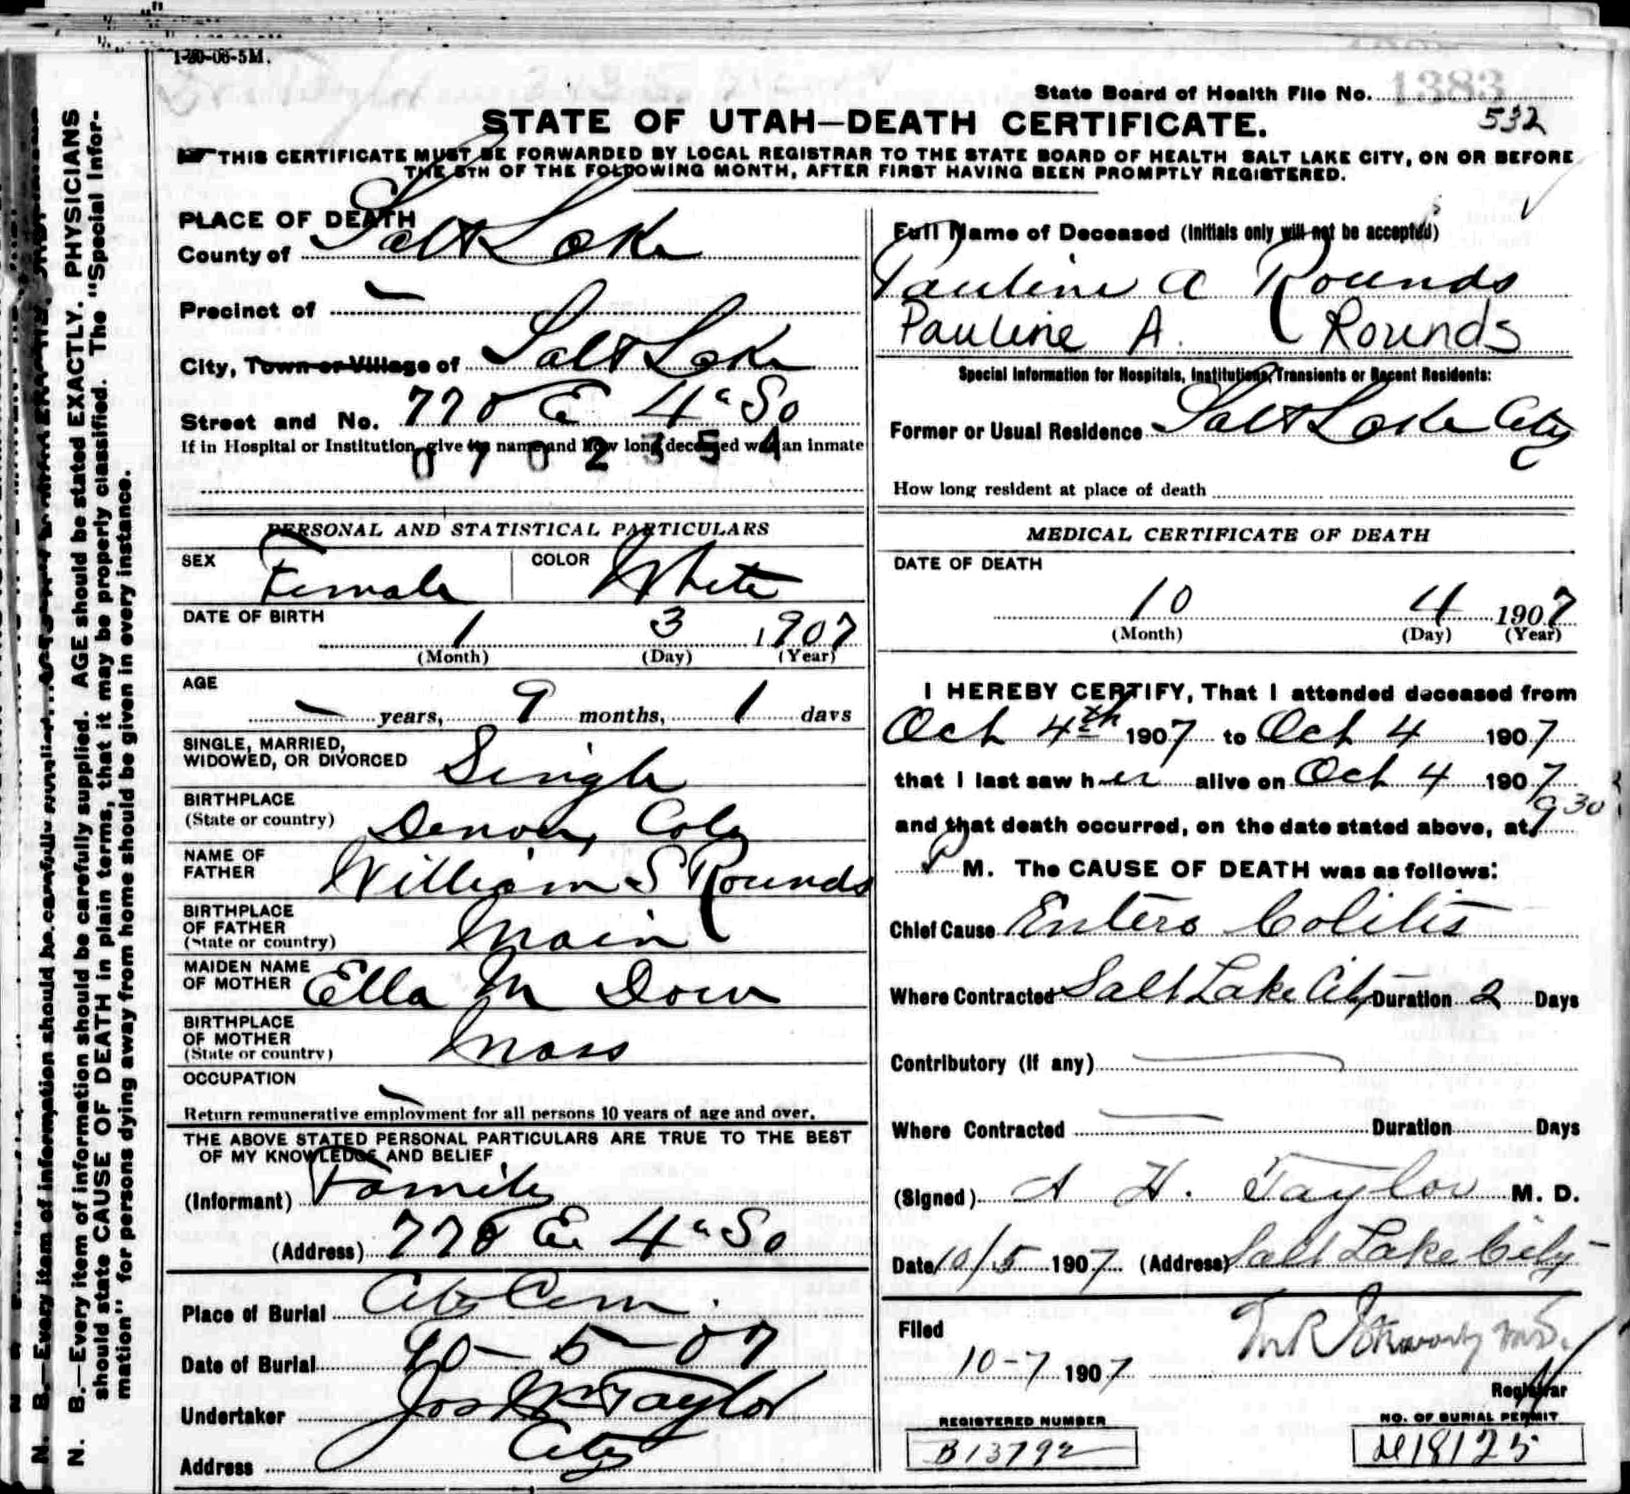 1-20-06-5M.
State Board of Health File No. 1383
532
STATE OF UTAH—DEATH CERTIFICATE.
THIS CERTIFICATE MUST BE FORWARDED BY LOCAL REGISTRAR TO THE STATE BOARD OF HEALTH SALT LAKE CITY, ON OR BEFORE
THE 5TH OF THE FOLLOWING MONTH, AFTER FIRST HAVING BEEN PROMPTLY REGISTERED.
N. B.—Every item of information should be carefully supplied. AGE should be stated EXACTLY. PHYSICIANS
should state CAUSE OF DEATH in plain terms, that it may be properly classified. The "Special Infor-
mation" for persons dying away from home should be given in every instance.
PLACE OF DEATH
County of Salt Lake
Precinct of —
City, Town or Village of Salt Lake
Street and No. 770 E 4th So
If in Hospital or Institution, give its name and how long deceased was an inmate
0702354
PERSONAL AND STATISTICAL PARTICULARS
SEX Female COLOR White
DATE OF BIRTH
1 3 1907
(Month) (Day) (Year)
AGE
— years, 9 months, 1 days
SINGLE, MARRIED,
WIDOWED, OR DIVORCED Single
BIRTHPLACE
(State or country) Denver, Colo
NAME OF
FATHER William S Rounds
BIRTHPLACE
OF FATHER
(State or country) Main
MAIDEN NAME
OF MOTHER Ella M Dow
BIRTHPLACE
OF MOTHER
(State or country) Mass
OCCUPATION —
Return remunerative employment for all persons 10 years of age and over.
THE ABOVE STATED PERSONAL PARTICULARS ARE TRUE TO THE BEST
OF MY KNOWLEDGE AND BELIEF
(Informant) Family
(Address) 770 E. 4th So
Place of Burial City Cem.
Date of Burial 10-5-07
Undertaker Jos Wm Taylor
Address City
Full Name of Deceased (Initials only will not be accepted)
Pauline A Rounds
Pauline A. Rounds
Special Information for Hospitals, Institutions, Transients or Recent Residents:
Former or Usual Residence Salt Lake City
How long resident at place of death
MEDICAL CERTIFICATE OF DEATH
DATE OF DEATH
10 4 1907
(Month) (Day) (Year)
I HEREBY CERTIFY, That I attended deceased from
Oct 4th 1907 to Oct 4 1907
that I last saw her alive on Oct 4 1907
and that death occurred, on the date stated above, at 9 30
P M. The CAUSE OF DEATH was as follows:
Chief Cause Entero Colitis
Where Contracted Salt Lake City Duration 2 Days
Contributory (If any) —
Where Contracted — Duration Days
(Signed) A H. Taylor M. D.
Date 10/5 1907 (Address) Salt Lake City
Filed
10-7 1907
Registrar
REGISTERED NUMBER
B13792
NO. OF BURIAL PERMIT
18125